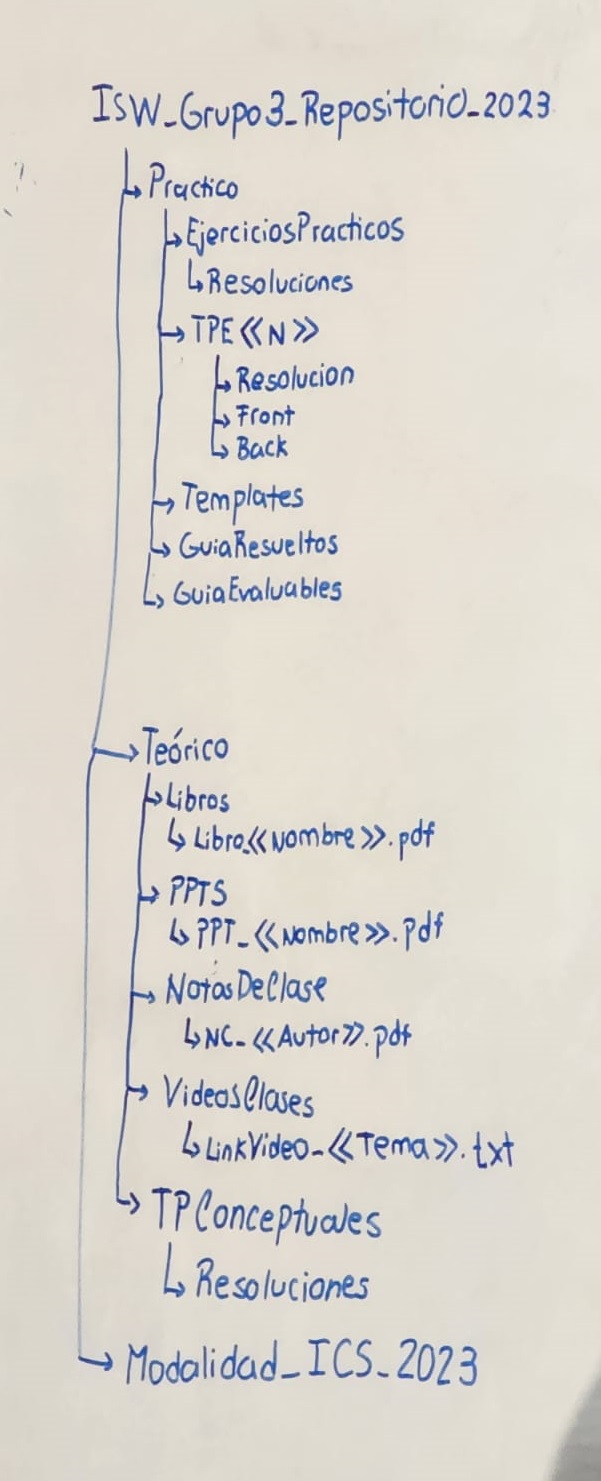 ISW_Grupo3_Repositorio_2023
Practico
EjerciciosPracticos
Resoluciones
TPE<<N>>
Resolucion
Front
Back
Templates
GuiaResueltos
GuiaEvaluables
Teórico
Libros
Libro_<<Nombre>>.pdf
PPTS
PPT_<<Nombre>>.pdf
NotasDeClase
NC_<<Autor>>.pdf
VideosClases
LinkVideo_<<Tema>>.txt
TPConceptuales
Resoluciones
Modalidad_ICS_2023